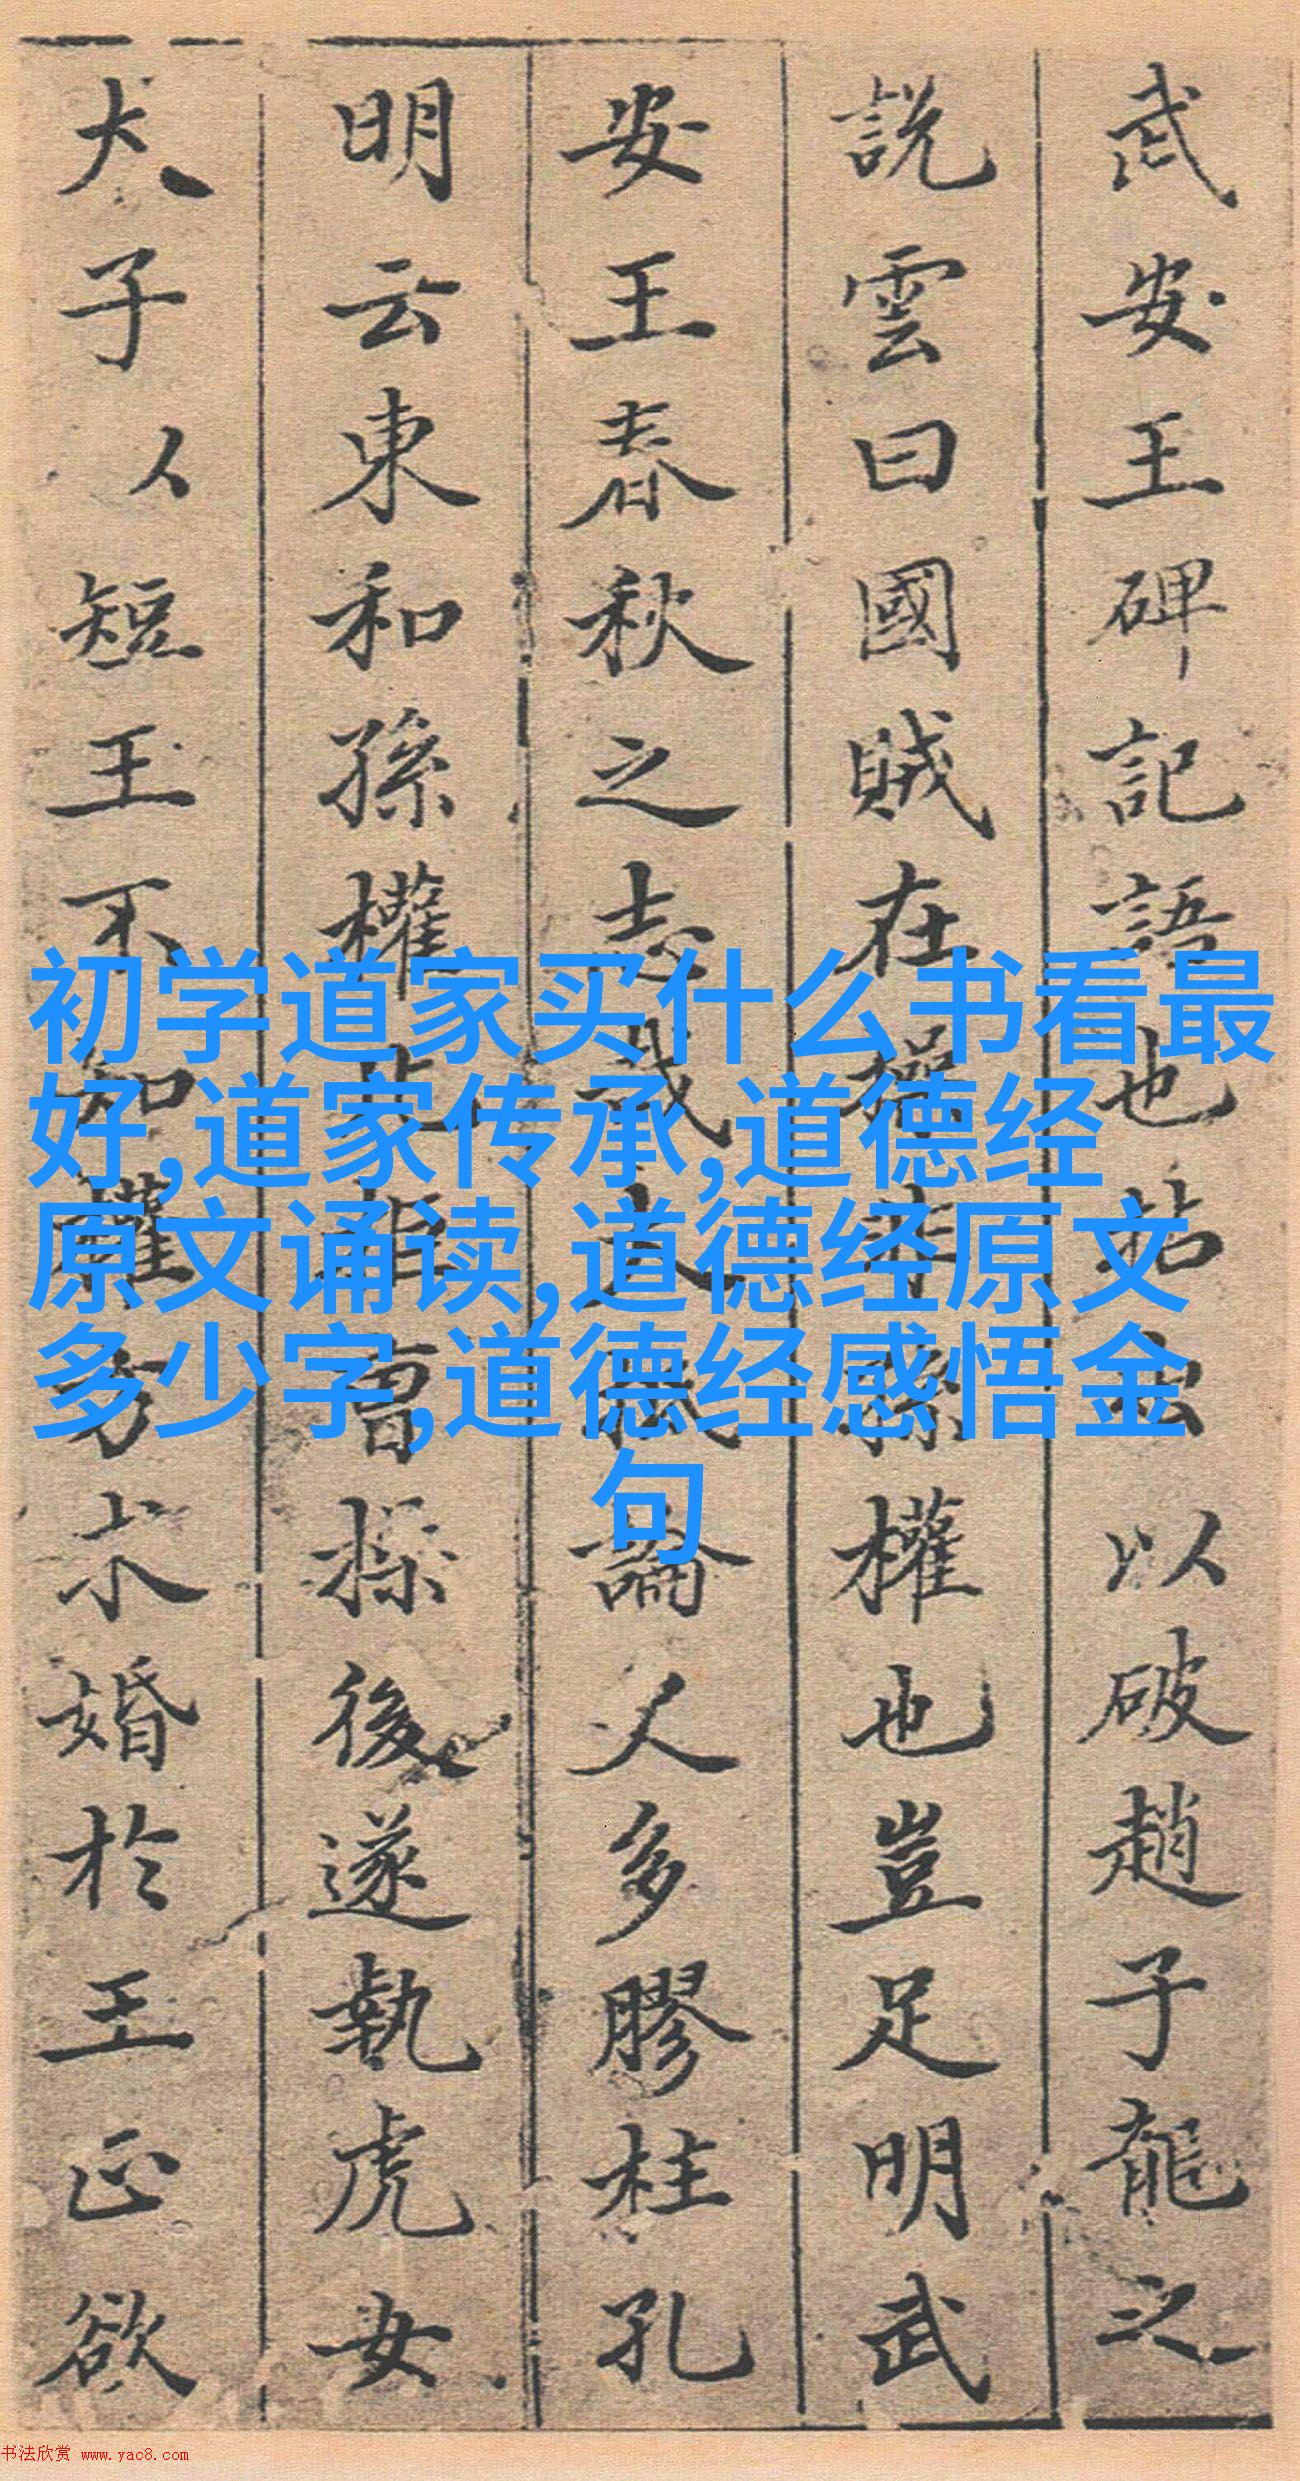 武安王碑記語也站出以破趙子龍之
說雲曰國賊在操非孫權也豈足明武
安王春秋之志哉大抵論人多膠柱孔
明云東和孫權北拒曹操後遂執虎女
犬子人短王不知權方求婚於王正欲
初学道家买什么书看最
好,道家传承,道德经
原文诵读,道德经原文
多少字,道德经感悟金
句
书法欣赏 www.yac8.com